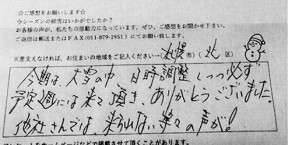 ☆ご感想をお願いします☆
今シーズンの排雪はいかがでしたか？
お客様の声が、私たちの原動力になっています。ぜひ、ご感想をお聞かせ下さい。
ご返信は郵送またはFAX(011-879-1951)にてお願いします。
※差支えなければ、お住まいの地域をご記入ください→(札幌市)(北区)
今期は大雪の中 日時調整しつつ必ず
予定週には来て頂き、ありがとうございました。
他社さんでは 来ない等々の声が!